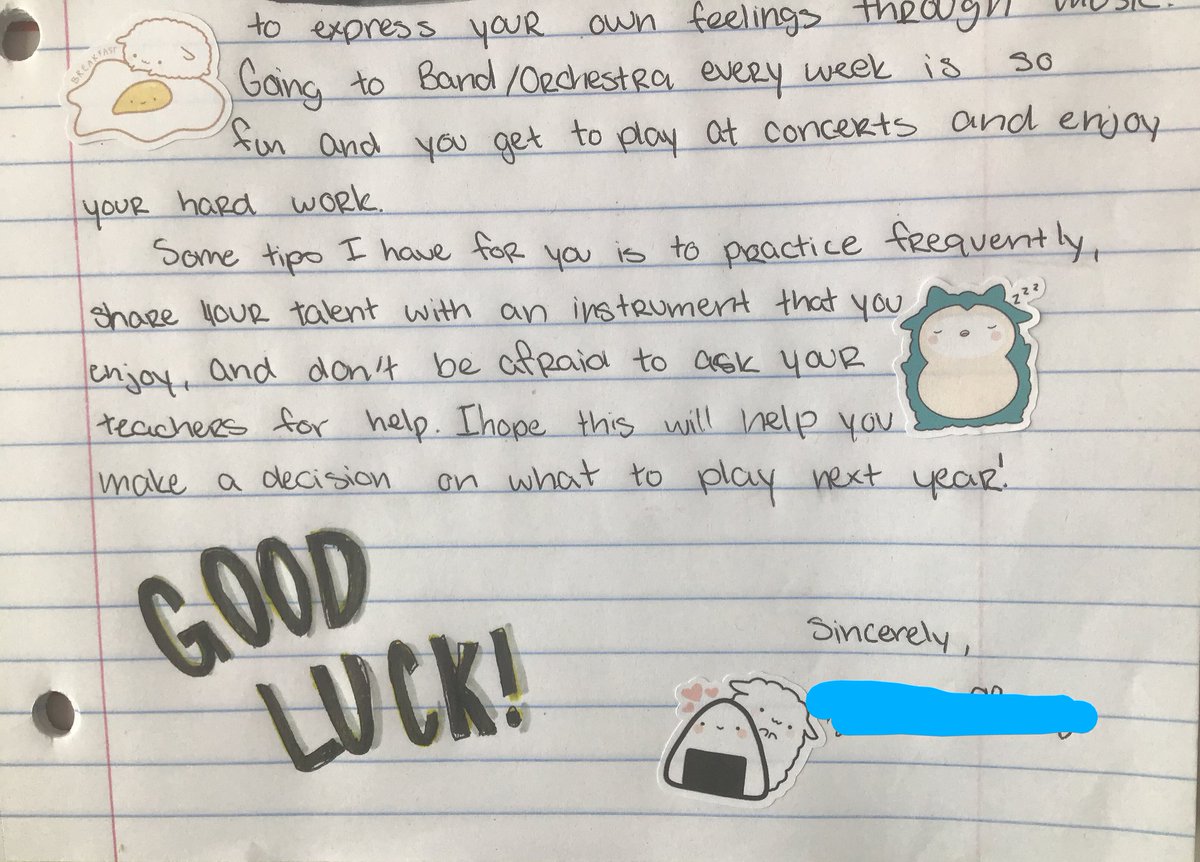 to express your own feelings through music.
BREAKFAST
Going to Band/Orchestra every week is so
fun and you get to play at concerts and enjoy
your hard work.
Some tips I have for you is to practice frequently,
share your talent with an instrument that you
zzz
enjoy, and don't be afraid to ask your
teachers for help. I hope this will help you
make a decision on what to play next year!
GOOD
LUCK!
Sincerely,